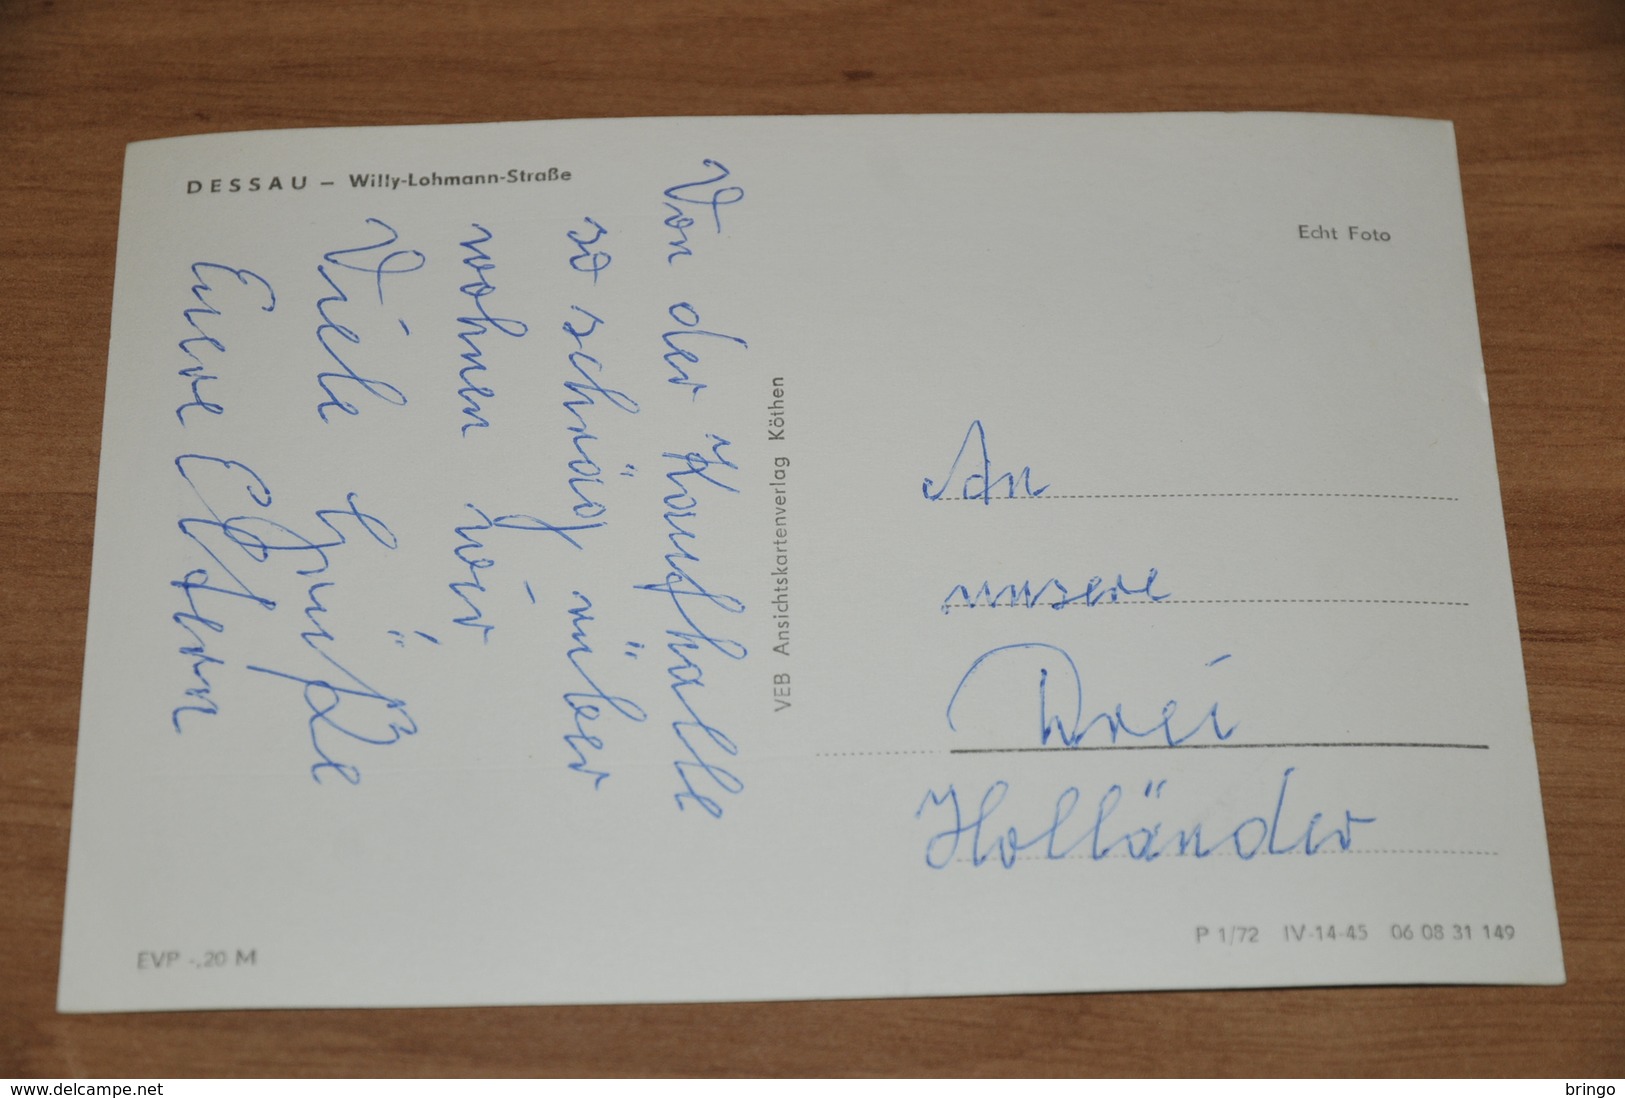 DESSAU – Willy-Lohmann-Straße
Von der Kaufhalle
so schräg über
wohnen wir
Viele Grüße
Eure Eltern
EVP -.20 M
VEB Ansichtskartenverlag Köthen
Echt Foto
An
unsere
Drei
Holländer
P 1/72 IV-14-45 06 08 31 149
www.delcampe.net
bringo